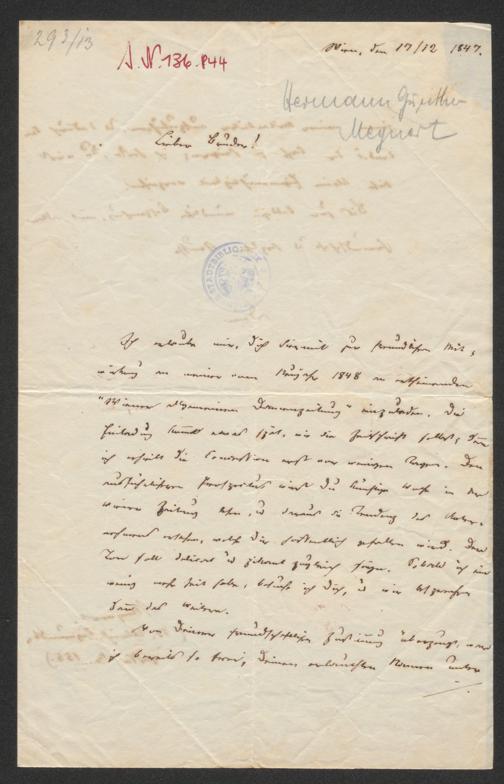 293/13
J.N. 136.844
Wien, den 17/12 1847.
Hermann Günther
Meynert
Lieber Bruder!
STADTBIBLIOTHEK
Ich erlaube mir, Dich hiemit zur freundlichen Mit-
wirkung an meiner vom Neujahr 1848 an erscheinenden
"Wiener allgemeinen Damenzeitung" einzuladen. Die
Einladung kommt etwas spät, wie die Zeitschrift selbst; denn
ich erhielt die Concession erst vor wenigen Tagen. Den
ausführlicheren Prospectus wirst Du künftige Woche in der
Wiener Zeitung lesen, u daraus die Tendenz des Unter-
nehmens ersehen, welche Dir hoffentlich gefallen wird. Der
Ton soll delicat u pikant zugleich seyn. Sobald ich ein
wenig mehr Zeit habe, besuche ich Dich, u wir besprechen
dann das Weitere.
Von Deiner freundschaftlichen Zusage überzeugt, war
ich bereits so frei, Deinen Namen unter